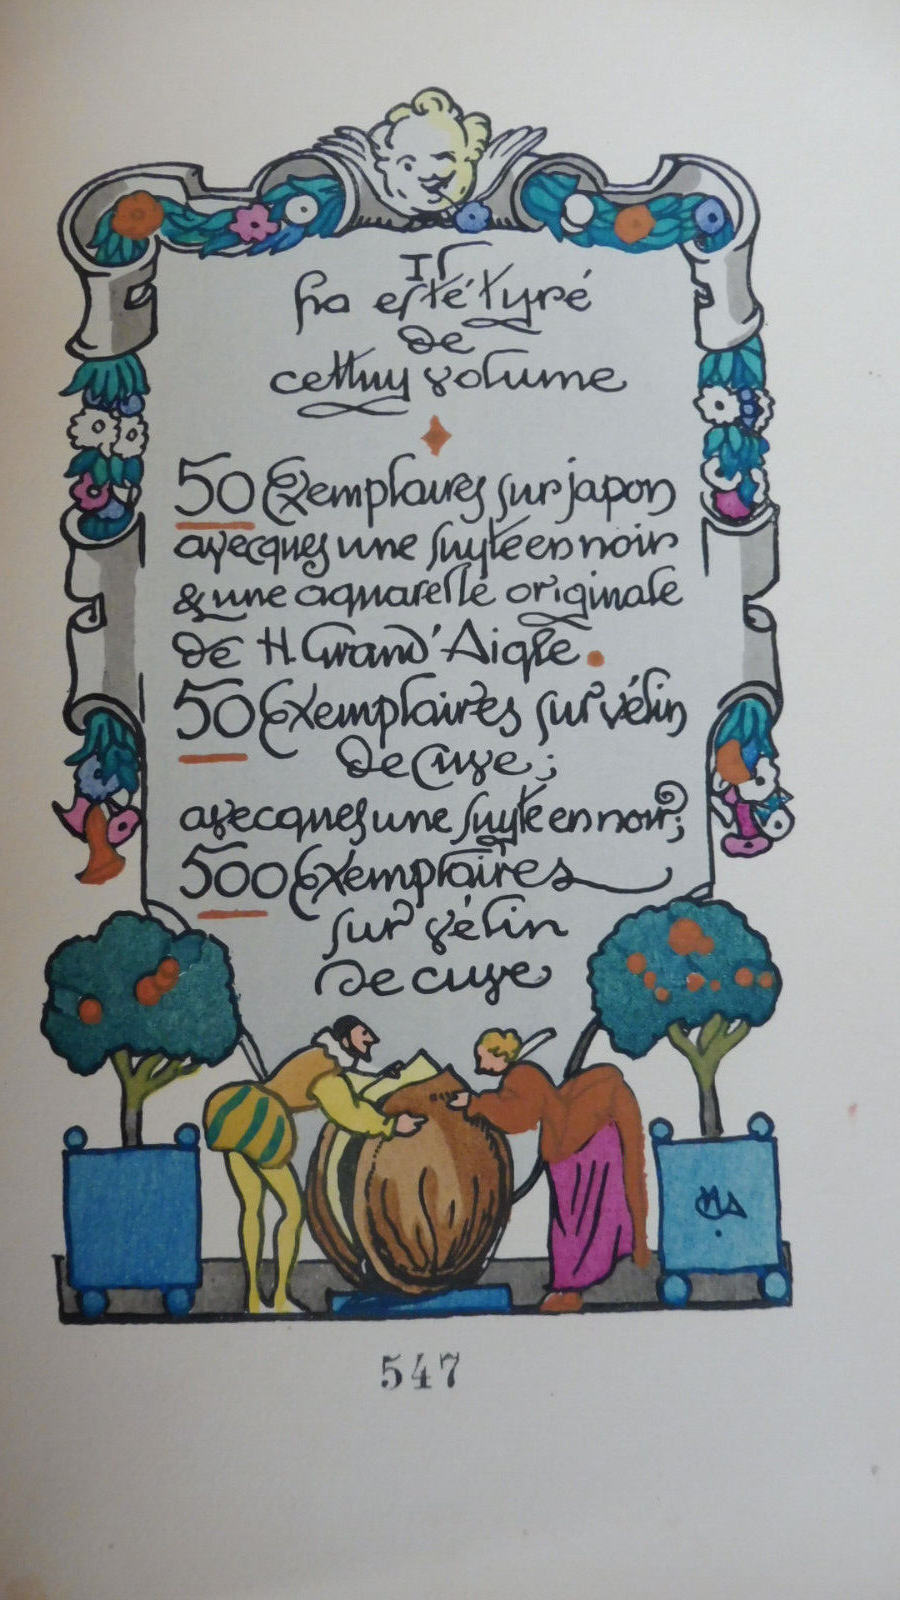 Il
ha esté tyré
de
cettuy volume
50 Exemplaires sur japon
avecques une suyte en noir
& une aquarelle originale
de H. Grand'Aigle.
50 Exemplaires sur vélin
de cuve;
avecques une suyte en noir;
500 Exemplaires
sur vélin
de cuve
547